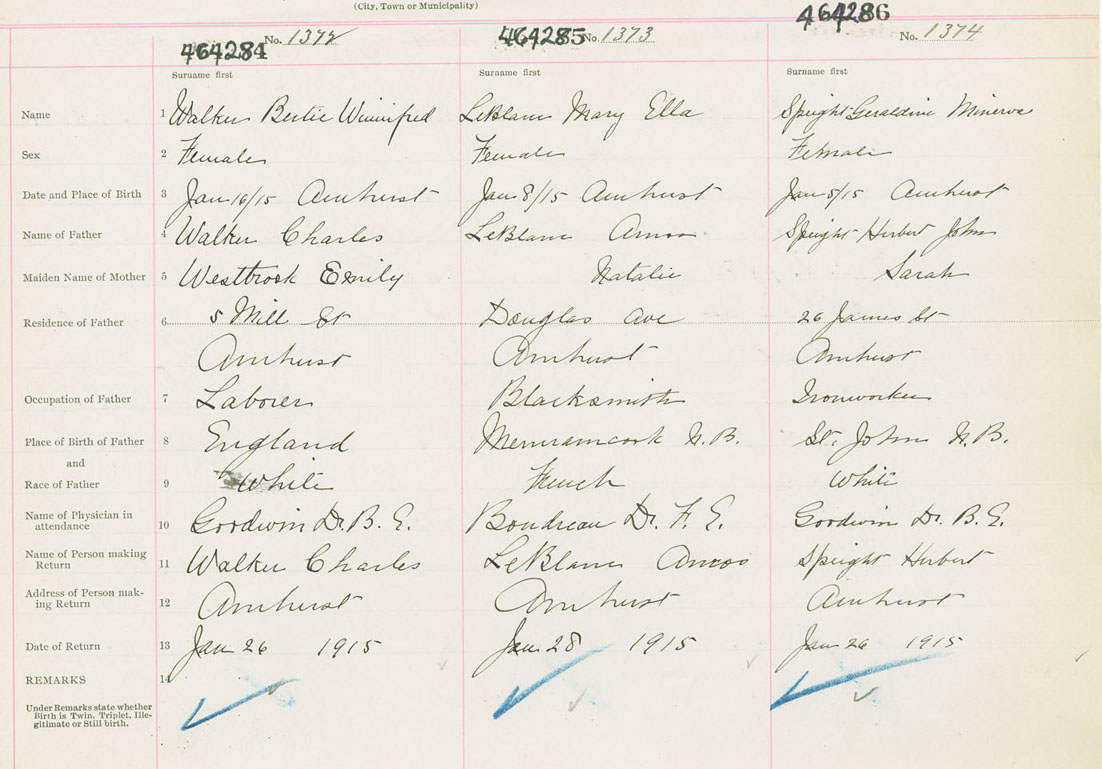 (City, Town or Municipality)
464284 No. 1372 464285 No. 1373 464286 No. 1374
Surname first Surname first Surname first
Name 1 Walker Bertie Winnifred LeBlanc Mary Ella Speight Geraldine Minerva
Sex 2 Female Female Female
Date and Place of Birth 3 Jan 16/15 Amherst Jan 8/15 Amherst Jan 5/15 Amherst
Name of Father 4 Walker Charles LeBlanc Amos Speight Herbert John
Maiden Name of Mother 5 Westbrook Emily Natalie Sarah
Residence of Father 6 5 Mill St Douglas Ave 26 James St
Amherst Amherst Amherst
Occupation of Father 7 Laborer Blacksmith Ironworker
Place of Birth of Father 8 England Memramcook N.B. St. John N.B.
and
Race of Father 9 White French White
Name of Physician in
attendance 10 Goodwin Dr. B. E. Boudreau Dr. F. E. Goodwin Dr. B. E.
Name of Person making
Return 11 Walker Charles LeBlanc Amos Speight Herbert
Address of Person mak-
ing Return 12 Amherst Amherst Amherst
Date of Return 13 Jan 26 1915 Jan 28 1915 Jan 26 1915
REMARKS 14
Under Remarks state whether
Birth is Twin, Triplet, Ille-
gitimate or Still birth.